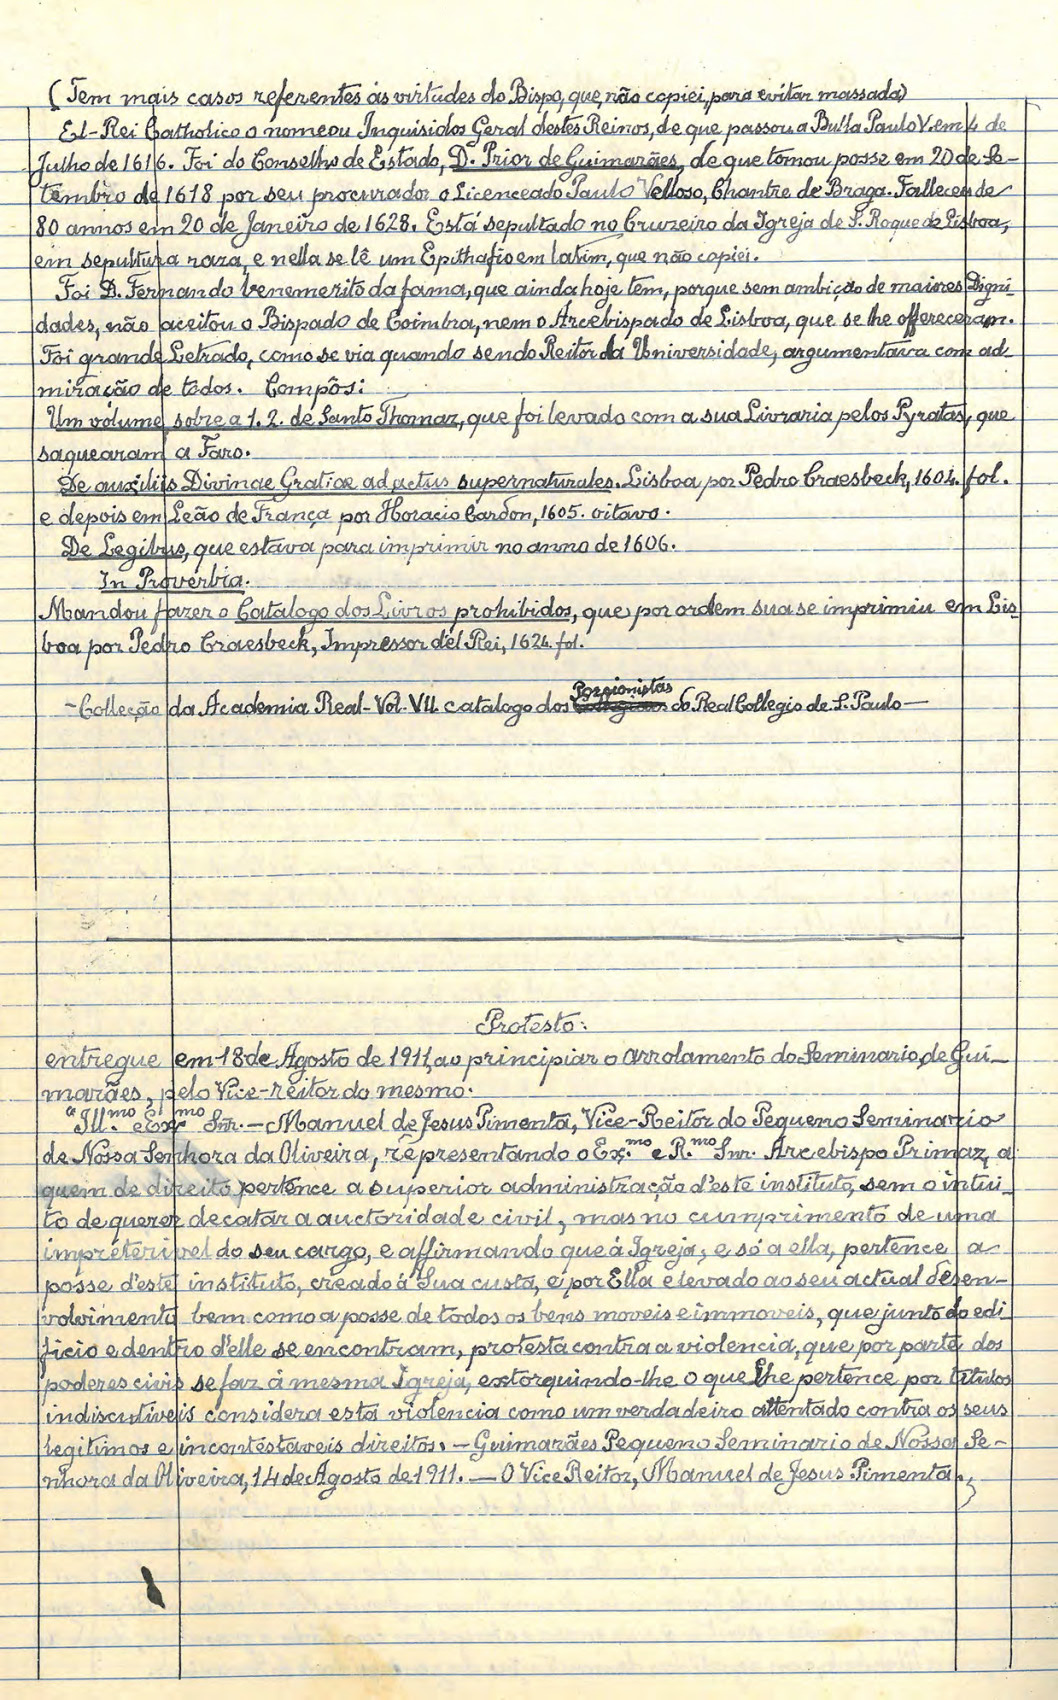 (Tem mais casos referentes ás virtudes do Bispo, que, não copiei, para evitar massada)
El-Rei Catholico o nomeou Inquisidos Geral destes Reinos, de que passou a Bulla Paulo V. em 4 de
Julho de 1616. Foi do Conselho de Estado, D. Prior de Guimarães, de que tomou posse em 20 de Se-
tembro de 1618 por seu procurador o Licenceado Paulo Velloso, Chantre de Braga. Falleceu de
80 annos em 20 de Janeiro de 1628. Está sepultado no Cruzeiro da Igreja de S. Roque de Lisboa,
em sepultura raza, e nella se lê um Epithafio em latim, que não copiei.
Foi D. Fernando benemerito da fama, que ainda hoje tem, porque sem ambição de maiores Digni-
dades, não aceitou o Bispado de Coimbra, nem o Arcebispado de Lisboa, que se lhe offereceram.
Foi grande Letrado, como se via quando sendo Reitor da Universidade, argumentava com ad-
miração de todos. Compôs:
Um volume sobre a 1. 2. de Santo Thomaz, que foi levado com a sua Livraria pelos Pyratas, que
saquearam a Faro.
De auxiliis Divinae Gratiae ad actus supernaturales. Lisboa por Pedro Craesbeck, 1604. fol.
e depois em Leão de França por Horacio Cardon, 1605. oitavo.
De Legibus, que estava para imprimir no anno de 1606.
In Proverbia.
Mandou fazer o Catalogo dos Livros prohibidos, que por ordem sua se imprimiu em Lis-
boa por Pedro Craesbeck, Impressor d'el Rei, 1624. fol.
Porcionistas
- Collecção da Academia Real - Vol. VII catalogo dos do Real Collegio de S. Paulo -
Protesto:
entregue em 18 de Agosto de 1911, ao principiar o arrolamento do Seminario, de Gui-
marães, pelo Vice-reitor do mesmo.
"Ill.mo e Ex.mo Snr. - Manuel de Jesus Pimenta, Vice-Reitor do Pequeno Seminario
de Nossa Senhora da Oliveira, representando o Ex.mo e R.mo Snr. Arcebispo Primaz, a
quem de direito pertence a superior administração d'este instituto, sem o intui-
to de querer decatar a auctoridade civil, mas no cumprimento de uma
impreterivel do seu cargo, e affirmando que á Igreja, e só a ella, pertence a
posse d'este instituto, creado á Sua custa, e por Ella elevado ao seu actual desen-
volvimento bem como a posse de todos os bens moveis e immoveis, que junto do edi
ficio e dentro d'elle se encontram, protesta contra a violencia, que por parte dos
poderes civis se faz á mesma Igreja, extorquindo-lhe o que lhe pertence por titulos
indiscutiveis considera esta violencia como um verdadeiro attentado contra os seus
legitimos e incontestaveis direitos. - Guimarães Pequeno Seminario de Nossa Se-
nhora da Oliveira, 14 de Agosto de 1911. - O Vice Reitor, Manuel de Jesus Pimenta.,